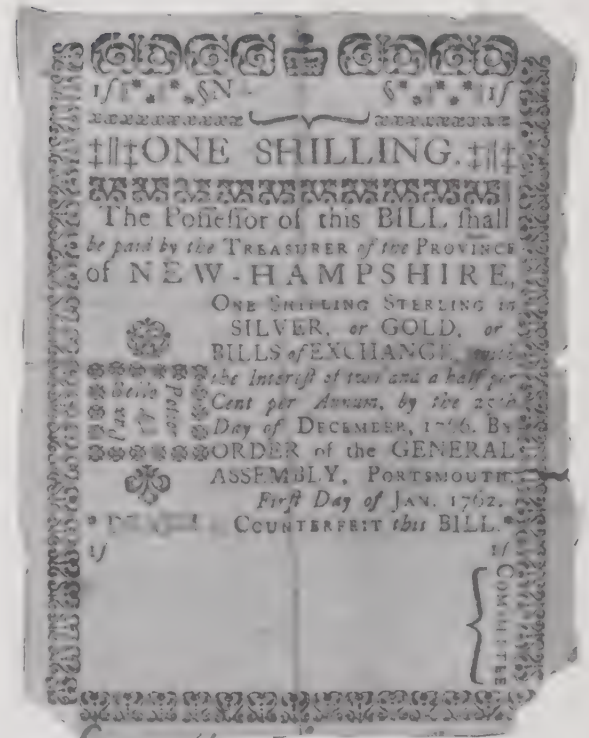 1ſ §N § 1ſ
‡||‡ONE SHILLING.‡||‡
The Poſſeſſor of this BILL ſhall
be paid by the TREASURER of the PROVINCE
of NEW-HAMPSHIRE,
ONE SHILLING STERLING in
SILVER, or GOLD, or
BILLS of EXCHANGE, with
the Intereſt of two and a half per
Cent per Annum, by the 25th
Day of DECEMBER, 1766. By
ORDER of the GENERAL
ASSEMBLY, PORTSMOUTH,
Firſt Day of JAN. 1762.
COUNTERFEIT this BILL.*
1ſ 1ſ
Pax
Bello
Potior
COMMITTEE